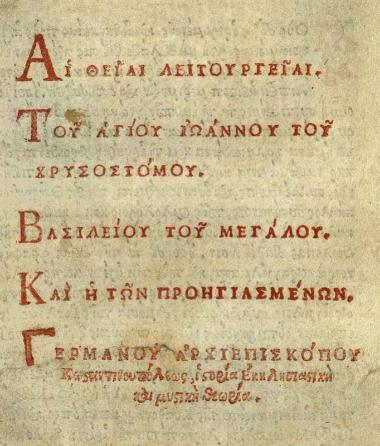 Αἱ θεῖαι λειτουργεῖαι.
Τοῦ ἁγίου ἰωάννου τοῦ
χρυσοστόμου.
Βασιλείου τοῦ μεγάλου.
Καὶ ἡ τῶν προηγιασμένων.
Γερμανοῦ ἀρχιεπισκόπου
Κωσταντινουπόλεως, ἱστορία ἐκκλησιαστικὴ
καὶ μυστικὴ θεωρία.